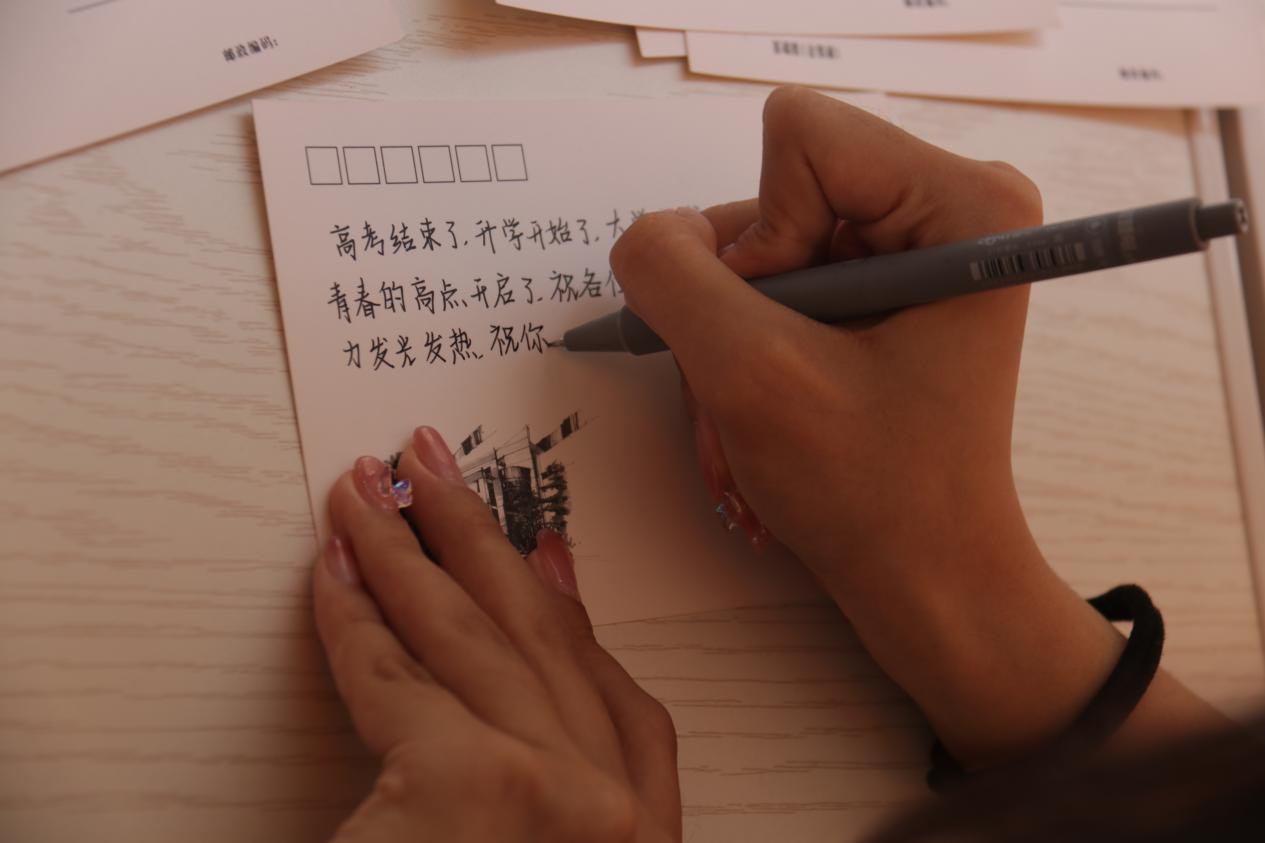 邮政编码:
高考结束了.升学开始了.大学
青春的高点、开启了.祝各
力发光发热、祝你